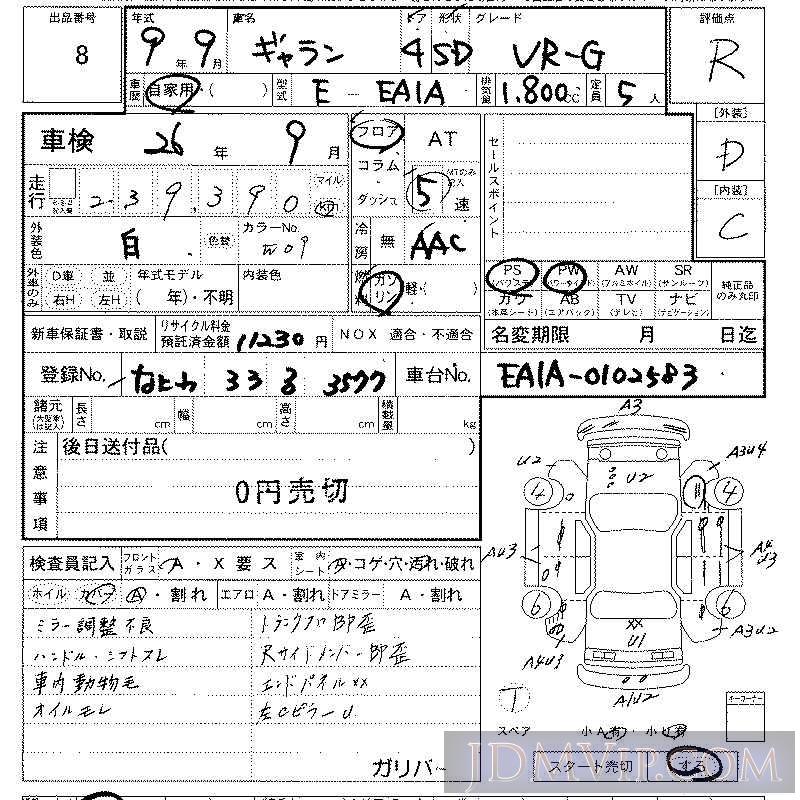 出品番号 年式 車名 ドア 形状 グレード 評価点
8 9年 9月 ギャラン 4 SD VR-G R
車歴 自家用・( ) 型式 E - EA1A 排気量 1,800cc 定員 5人
[外装] D
[内装] C
車検 26年 9月
フロア コラム ダッシュ AT MTのみ記入 5 速
セールスポイント
走行 239,390 マイル km
外装色 白 色替 カラーNo. W09 冷房 無 AAC
外車のみ D車 並 右H 左H 年式モデル ( 年)・不明 内装色 燃料 ガソリン 軽・( )
PS (パワステ) PW (パワーウインド) AW (アルミホイル) SR (サンルーフ) 純正品のみ丸印
カワ (本革シート) AB (エアバック) TV (テレビ) ナビ (ナビゲーション)
新車保証書・取説 リサイクル料金預託済金額 11230円 NOX 適合・不適合
名変期限 月 日迄
登録No. なにわ 33 る 3577 車台No. EA1A-0102583
諸元 (大型車は記入) 長さ cm 幅 cm 高さ cm 積載量 kg
注意事項 後日送付品( )
0円売切
A3
U2 U2 A3U4
4 4
AU3 A4 U3
6 6
XX U1 A3U2
A4U3
A1U2
検査員記入 フロントガラス A・X要ス 室内シート タ・コゲ・穴・汚れ・破れ
ホイル カバー A・割れ エアロ A・割れ ドアミラー A・割れ
ミラー調整不良 トランクフロア歪
ハンドル・シフトスレ Rサイドメンバー 歪
車内動物毛 エンドパネルXX
オイルモレ 左Cピラー U
T
スペア 小A有・小U有
キーコーナー
ガリバー
スタート売切 する
JDMVIP.com